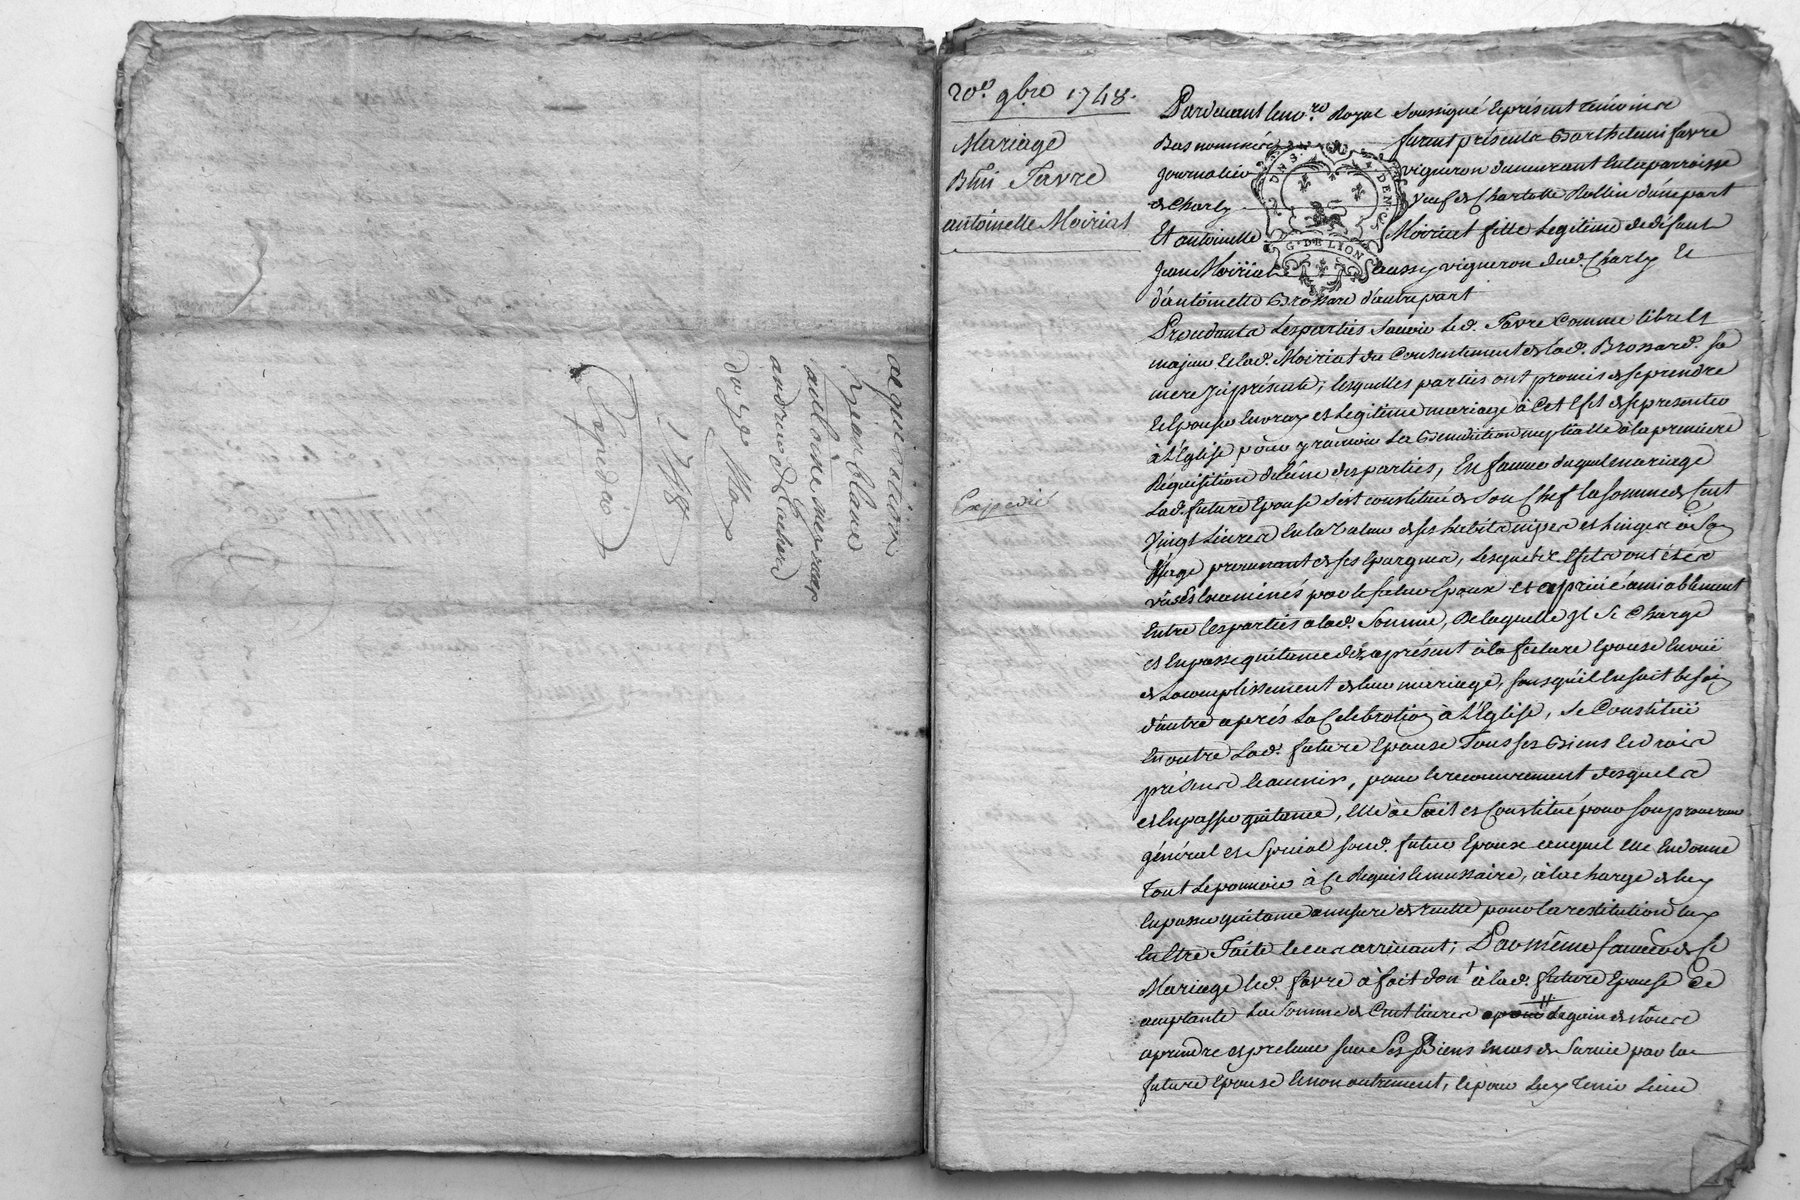 acquisition
jean blanc
andrine et
du 29e Mars
1748
Expedié
20e 9bre 1748.
Mariage
Bmi Favre
antoinette Moiriat
Expedié
Pardevant le no.re Royal Soussigné et présents témoins
Bas nommés furent présents Barthelemi favre
journalier vigneron demeurant en la parroisse
de Charly veuf de Charlotte Rollin d'une part
Et antoinette Moiriat fille Legitime de défunt
Jean Moiriat aussy vigneron dud. Charly Et
d'antoinette Brossard d'autre part
G. DE LION
Procedants Les parties Scavoir le d. Favre Comme libre Et
majeur Et lad. Moiriat du Consentement de lad. Brossard. sa
mere Jcy présente; lesquelles parties ont promis de se prendre
Et Epouser En vray et Legitime mariage à Cet Effet de se presenter
à L'Eglise pour y recevoir La Benediction nuptialle à la premiere
Requisition de L'une des parties, En faveur duquel mariage
Lad. future Epouse s'est constituée de Son Chef la somme de Cent
Vingt Livres En la Valeur de ses habits nipes et linges à Son
Usage provenant de ses Epargnes, Lesquels Effets ont étés
vus Et Examinés par le futur Epoux et apprecié amiablement
Entre les parties a lad. Somme, De laquelle Jl Se Charge
et En passe quitance dez apresent à la future Epouse En vüe
de L'accomplissement de leur mariage, sans qu'il En soit besoin
d'autre aprés La Celebration à L'Eglise, Se Constitüe
En outre Lad. future Epouse Tous ses Biens Et droits
présents Et avenirs, pour le recouvrement desquels
et En passer quitance, Elle à Fait et Constitué pour son procureur
général et Special sond. futur Epoux auquel Elle En donne
Tout Le pouvoir à Ce Requis Et necessaire, à la charge de luy
En passer quitance a mesure de recette pour la restitution luy
En Etre Faite le cas arrivant; Par même faveur de Ce
Mariage led. favre à fait don à lad. future Epouse Ce
acceptante La Somme de Cent livres de gain de nôces
a prendre et prelever sur Ses Biens En cas de Survie par la
future Epouse Et non autrement, Et pour Luy Tenir Lieu